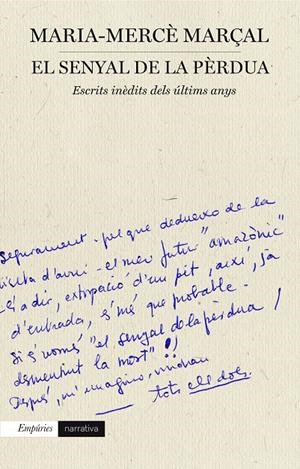 MARIA-MERCÈ MARÇAL
EL SENYAL DE LA PÈRDUA
Escrits inèdits dels últims anys
segurament -pel que dedueixo de la
visita d'avui- el meu futur "amazònic"
-és a dir, extirpació d'un pit, així, ja
d'entrada, s'més que probable.
Si és només "el senyal de la pèrdua /
desmentint la mort"!!
Després, m'imagino, vindran
tots els dols.
Empúries narrativa